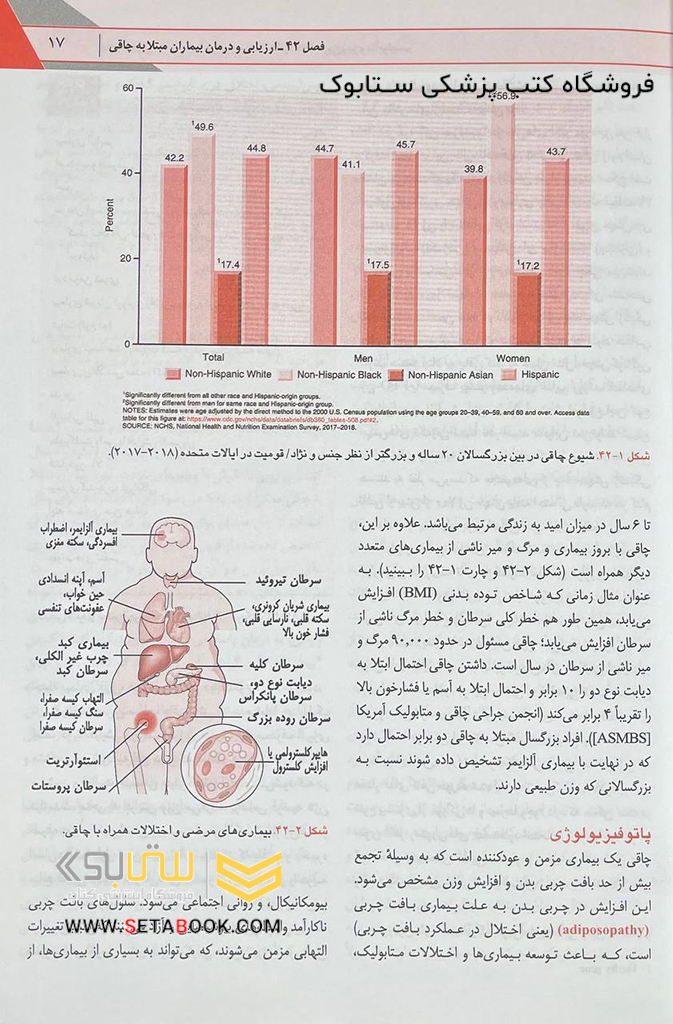 فصل ۴۲ـ ارزیابی و درمان بیماران مبتلا به چاقی
۱۷
فروشگاه کتب پزشکی ستابوک
60
40
20
0
Percent
42.2
¹49.6
¹17.4
44.8
44.7
41.1
¹17.5
45.7
39.8
56.9
¹17.2
43.7
Total
Men
Women
Non-Hispanic White
Non-Hispanic Black
Non-Hispanic Asian
Hispanic
¹Significantly different from all other race and Hispanic-origin groups.
²Significantly different from men for same race and Hispanic-origin group.
NOTES: Estimates were age adjusted by the direct method to the 2000 U.S. Census population using the age groups 20–39, 40–59, and 60 and over. Access data
table for this figure at: https://www.cdc.gov/nchs/data/databriefs/db360_tables-508.pdf#2.
SOURCE: NCHS, National Health and Nutrition Examination Survey, 2017–2018.
شکل ۱-۴۲. شیوع چاقی در بین بزرگسالان ۲۰ ساله و بزرگتر از نظر جنس و نژاد/ قومیت در ایالات متحده (۲۰۱۸-۲۰۱۷).
تا ۶ سال در میزان امید به زندگی مرتبط می‌باشد. علاوه بر این،
چاقی با بروز بیماری و مرگ و میر ناشی از بیماری‌های متعدد
دیگر همراه است (شکل ۲-۴۲ و چارت ۱-۴۲ را ببینید). به
عنوان مثال زمانی که شاخص توده بدنی (BMI) افزایش
می‌یابد، همین طور هم خطر کلی سرطان و خطر مرگ ناشی از
سرطان افزایش می‌یابد؛ چاقی مسئول در حدود ۹۰,۰۰۰ مرگ و
میر ناشی از سرطان در سال است. داشتن چاقی احتمال ابتلا به
دیابت نوع دو را ۱۰ برابر و احتمال ابتلا به آسم یا فشارخون بالا
را تقریباً ۴ برابر می‌کند (انجمن جراحی چاقی و متابولیک آمریکا
[ASMBS]). افراد بزرگسال مبتلا به چاقی دو برابر احتمال دارد
که در نهایت با بیماری آلزایمر تشخیص داده شوند نسبت به
بزرگسالانی که وزن طبیعی دارند.
پاتوفیزیولوژی
چاقی یک بیماری مزمن و عودکننده است که به وسیلهٔ تجمع
بیش از حد بافت چربی بدن و افزایش وزن مشخص می‌شود.
این افزایش در چربی بدن به علت بیماری بافت چربی
(adiposopathy) (یعنی اختلال در عملکرد بافت چربی)
است، که باعث توسعه بیماری‌ها و اختلالات متابولیک،
بیماری آلزایمر، اضطراب
افسردگی، سکته مغزی
آسم، آپنه انسدادی
حین خواب،
عفونت‌های تنفسی
بیماری کبد
چرب غیر الکلی،
سرطان کبد
التهاب کیسه صفرا،
سنگ کیسه صفرا،
سرطان کیسه صفرا
استئوآرتریت
سرطان پروستات
سرطان تیروئید
بیماری شریان کرونری،
سکته قلبی، نارسایی قلبی،
فشار خون بالا
سرطان کلیه
دیابت نوع دو،
سرطان پانکراس
سرطان روده بزرگ
هایپرکلسترولمی یا
افزایش کلسترول
شکل ۲-۴۲. بیماری‌های مرضی و اختلالات همراه با چاقی.
ستابوک
فروشگاه اینترنتی کتاب
بیومکانیکال، و روانی اجتماعی می‌شود. سلول‌های بافت چربی
ناکارآمد
تغییرات
WWW.SETABOOK.COM
التهابی مزمن می‌شوند، که می‌تواند به بسیاری از بیماری‌ها، از